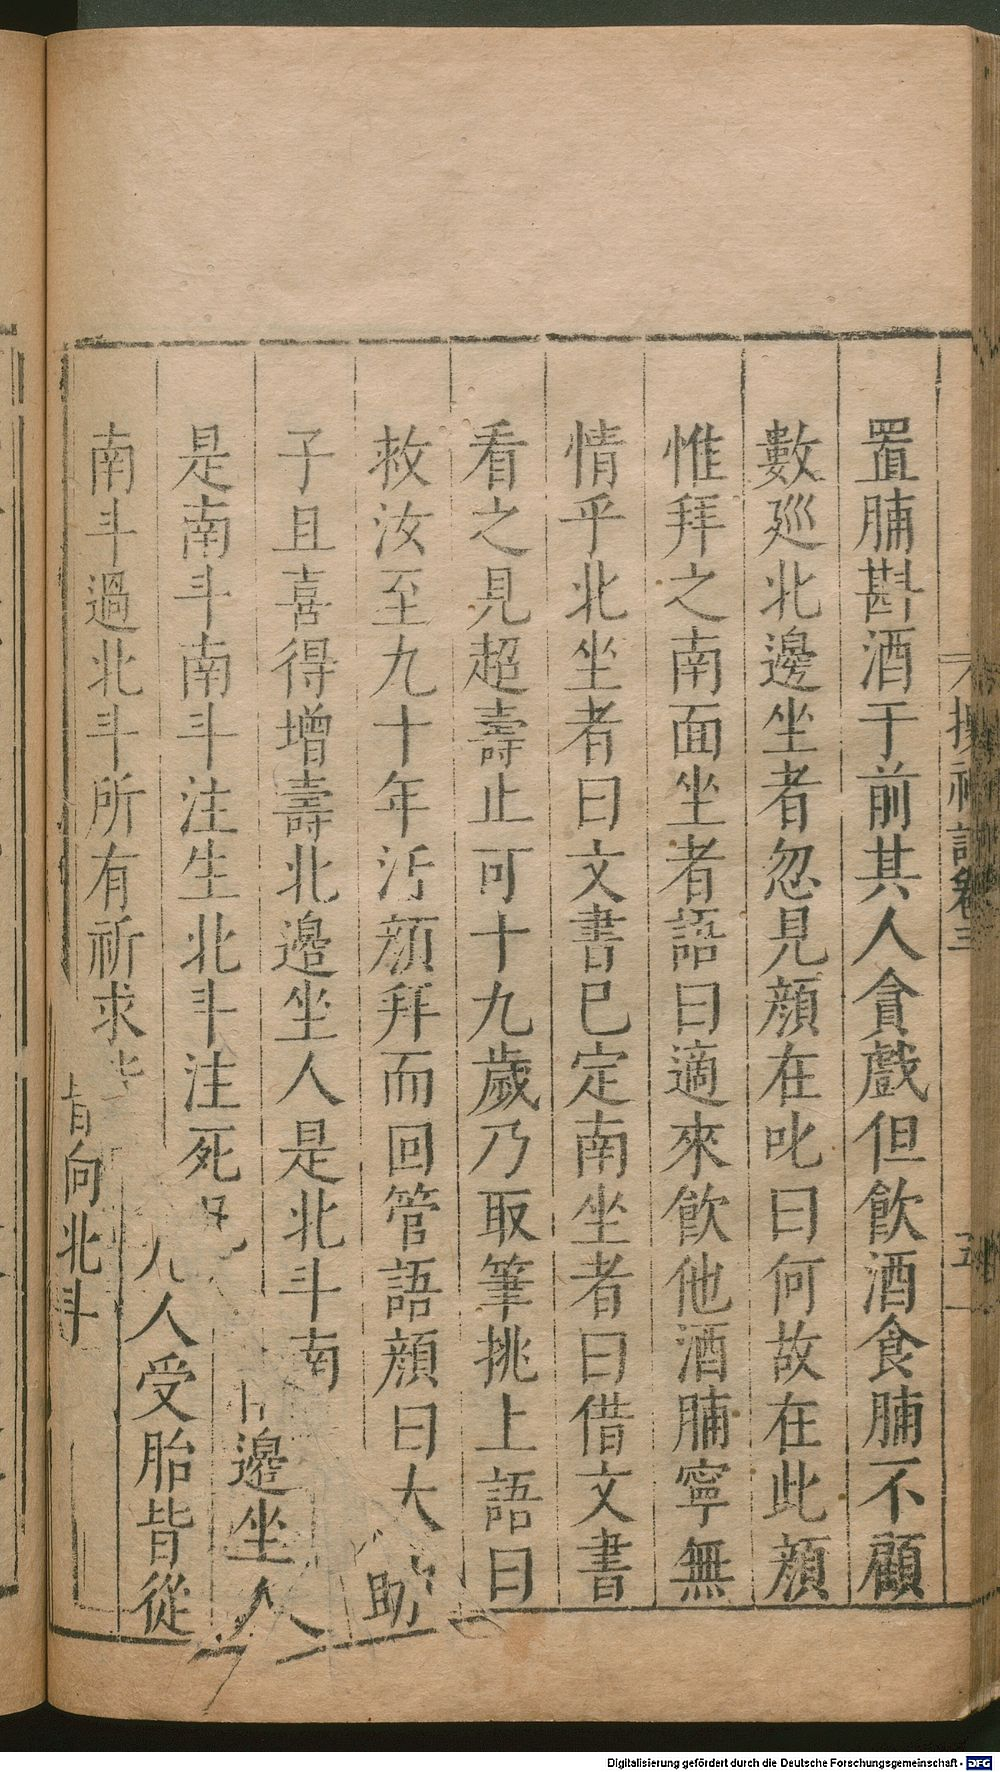 搜神記卷三
五
置脯斟酒于前其人貪戲但飲酒食脯不顧
數巡北邊坐者忽見顏在叱曰何故在此顏
惟拜之南面坐者語曰適來飲他酒脯寧無
情乎北坐者曰文書巳定南坐者曰借文書
看之見超壽止可十九歲乃取筆挑上語曰
救汝至九十年活顏拜而回管語顏曰大助
子且喜得增壽北邊坐人是北斗南邊坐人
是南斗南斗注生北斗注死凡人受胎皆從
南斗過北斗所有祈求皆向北斗
Digitalisierung gefördert durch die Deutsche Forschungsgemeinschaft - DFG